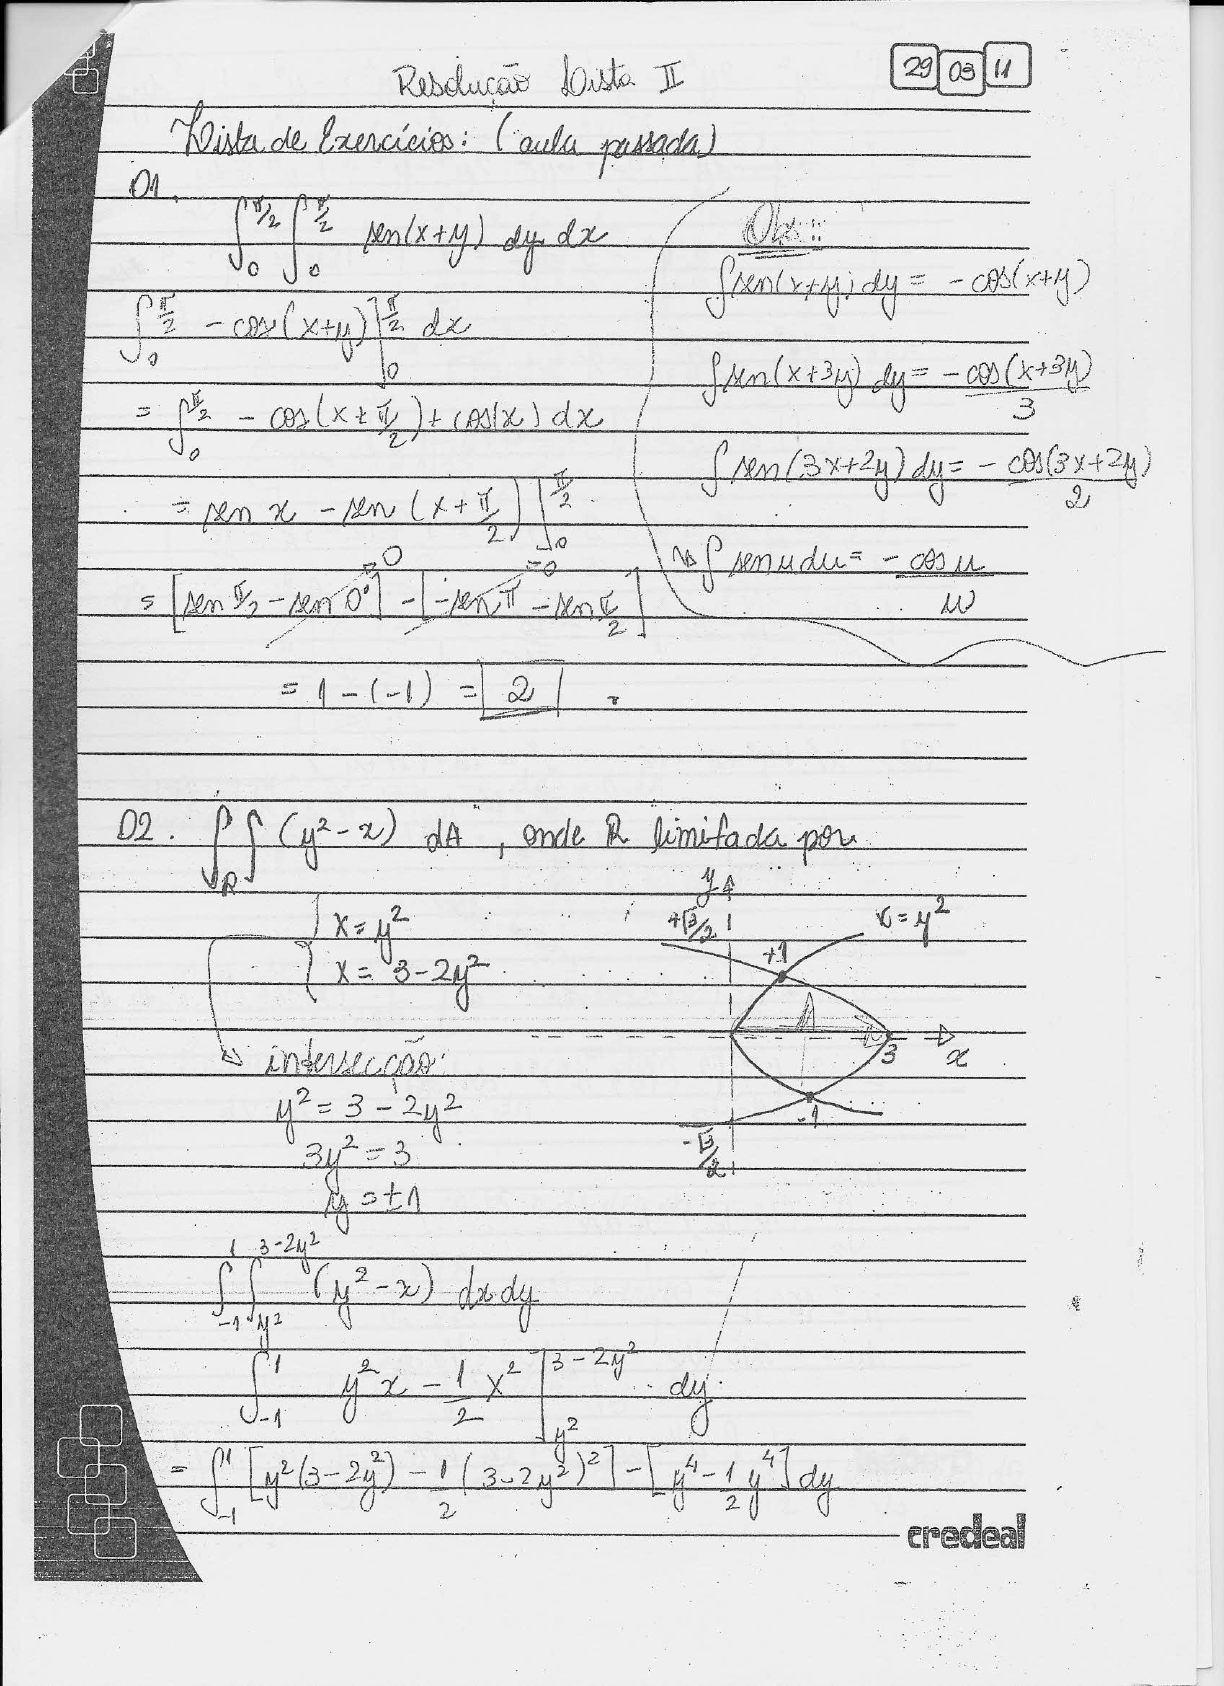 29 03 11
Resolução Lista II
Lista de Exercícios: (aula passada)
01.
∫₀^{π/2} ∫₀^{π/2} sen(x+y) dy dx
∫₀^{π/2} - cos(x+y) ]₀^{π/2} dx
= ∫₀^{π/2} - cos(x + π/2) + cos(x) dx
= sen x - sen (x + π/2) ]₀^{π/2}
= [sen π/2 - sen 0°] - [-sen π - sen π/2]
0
=0
= 1 - (-1) = 2
Obs.::
∫ sen(x+y) dy = - cos(x+y)
∫ sen(x+3y) dy = - cos(x+3y)/3
∫ sen(3x+2y) dy = - cos(3x+2y)/2
∫ sen u du = - cos u / u
02. ∫∫_R (y² - x) dA , onde R limitada por
x = y²
x = 3 - 2y²
intersecção:
y² = 3 - 2y²
3y² = 3
y = ±1
y
+√3/2
x = y²
+1
3
x
-1
-√3/2
∫₋₁^1 ∫_{y²}^{3-2y²} (y² - x) dx dy
∫₋₁^1 y²x - 1/2 x² ]_{y²}^{3-2y²} dy
= ∫₋₁^1 [y²(3-2y²) - 1/2 (3-2y²)²] - [y⁴ - 1/2 y⁴] dy
credeal